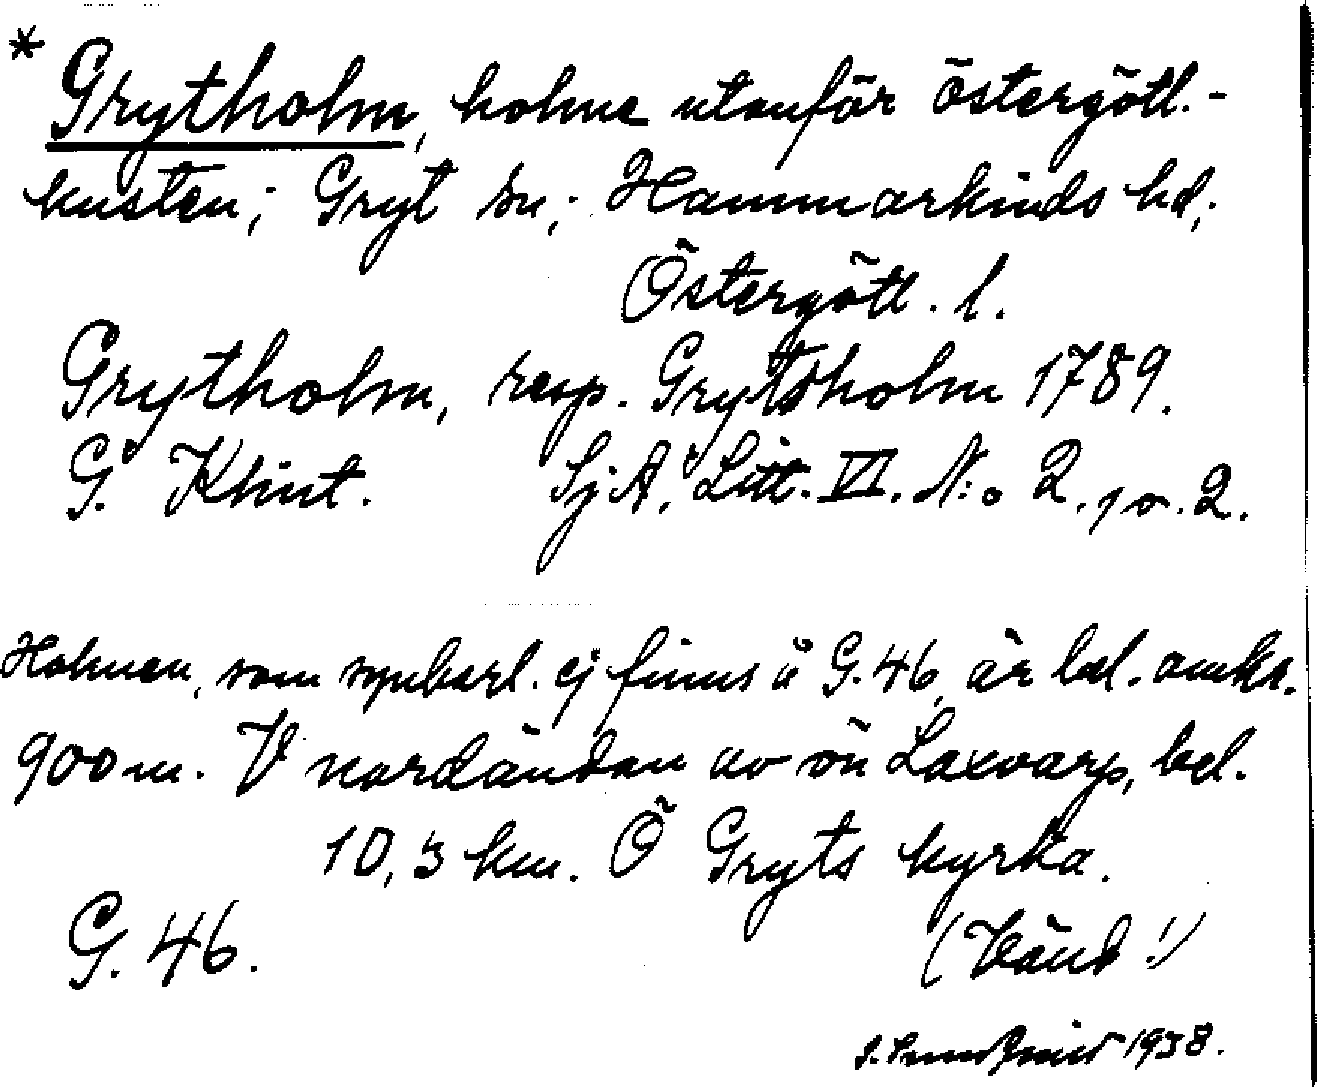 * Grytholm, holme utanför östergötl.-
kusten; Gryt sn; Hammarkinds hd;
Östergötl. l.
Grytholm, resp. Grytsholm 1789.
G. Klint. SjA. Litt. VI. N:o 2. p. 2.
Holmen, som synbarl. ej finns å G.46, är bel. omkr.
900 m. V nordändan av ön Laxvarp, bel.
10,3 km. Ö Gryts kyrka.
G. 46. (Vänd!)
1938.